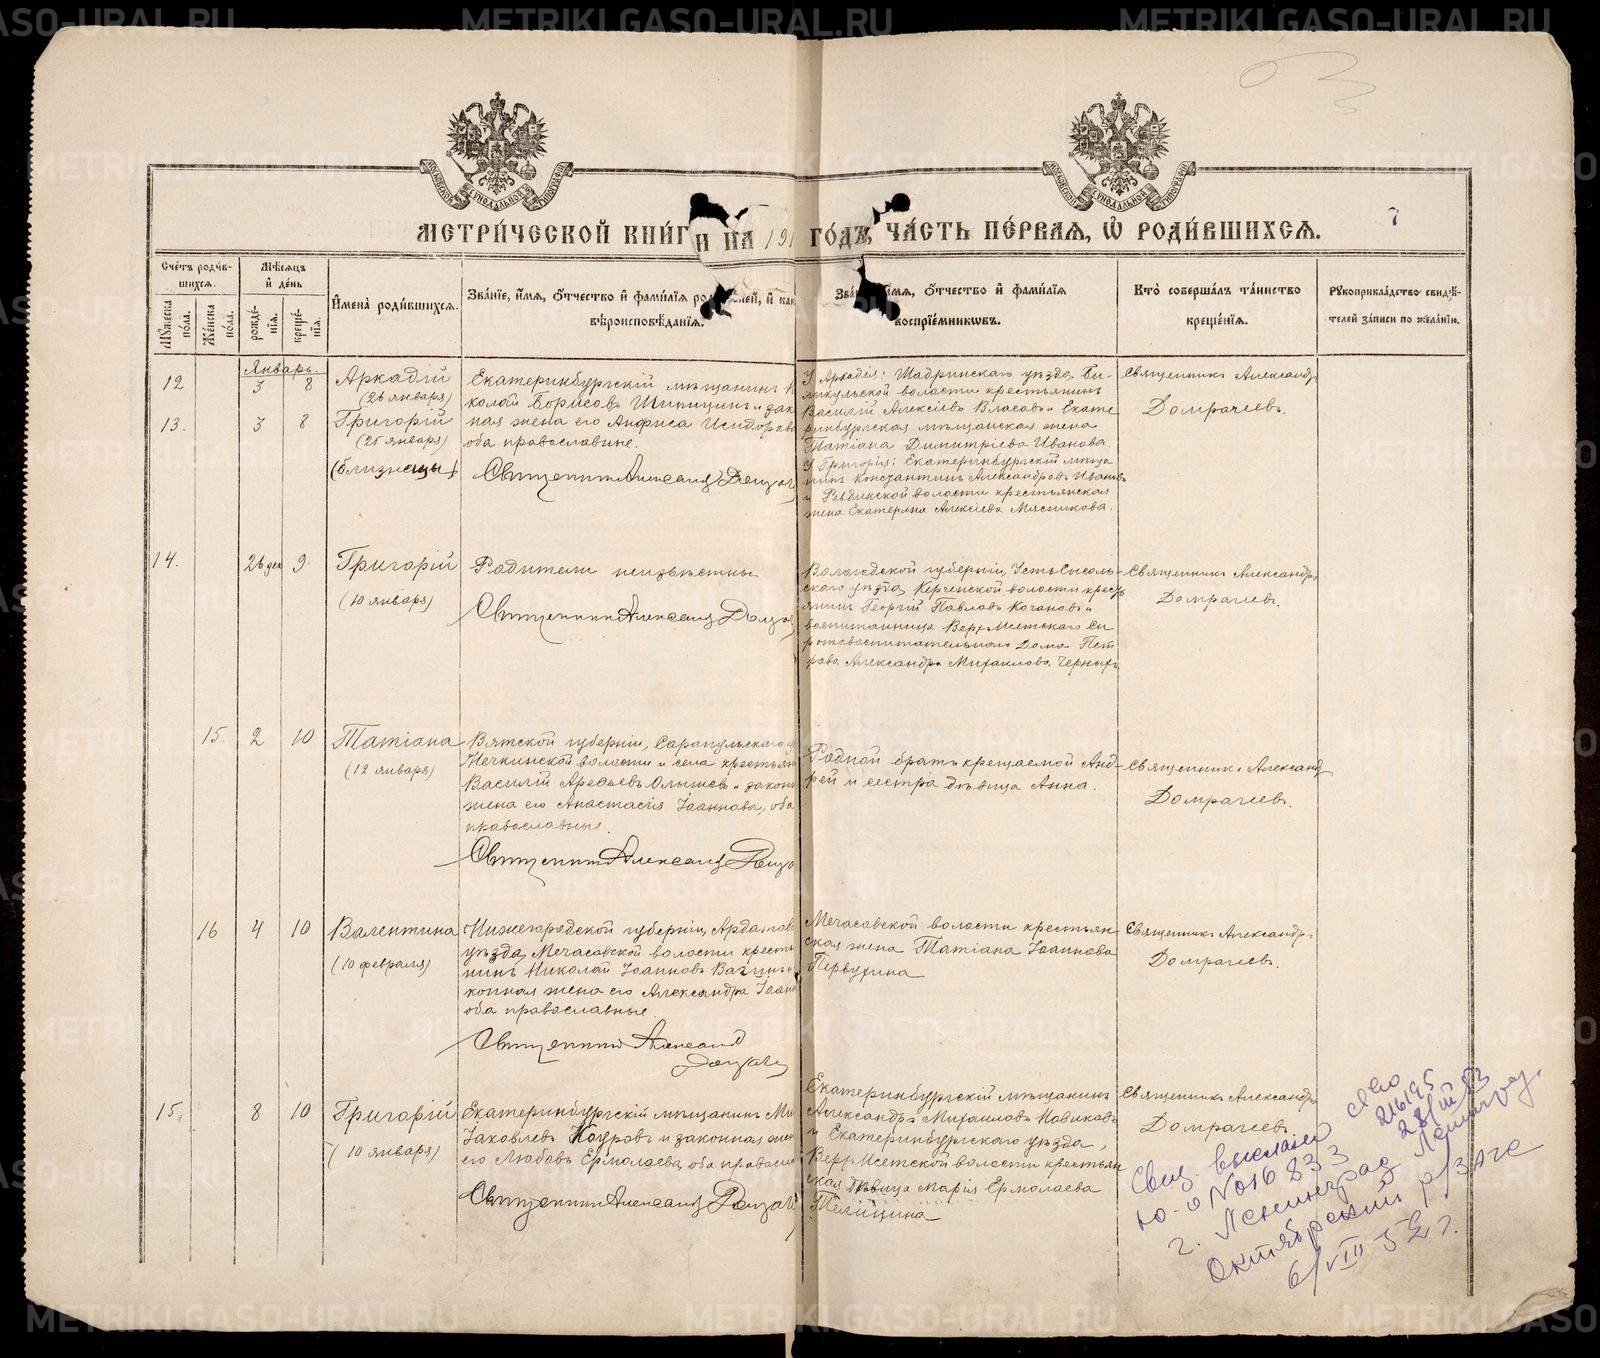 МЕТРИ́ЧЕСКОЙ КНИ́ГИ НА 191
ГО́ДЪ, ЧА́СТЬ ПЕ́РВАЯ, Ѡ҆ РОДИ́ВШИХСЯ.
7
Сче́тъ роди́в-
шихся.
Мꙋ́жеска по́ла.
Же́нска по́ла.
Мѣ́сяцъ
и҆ де́нь
рожде́-нїя.
креще́-нїя.
И҆мена̀ роди́вшихся.
Зва́нїе, и҆́мя, ѻ҆́тчество и҆ фами́лїя род лей, и҆ как
вѣроисповѣ́данїя.
Зва и҆́мя, ѻ҆́тчество и҆ фами́лїя
воспрїе́мникѡвъ.
Кто̀ соверша́лъ та́инство
креще́нїя.
Рꙋкоприкла́дство свидѣ́-
телей за́писи по жела́нїю.
Январь.
12
3 8
Аркадій
(26 января)
13.
3 8
Григорій
(25 января)
(близнецы)
Екатеринбургскій мѣщанинъ Ни
колай Борисовъ Шипицинъ и зак
ная жена его Анфиса Исидорова
оба православные.
Священникъ Александр
У Аркадія: Шадринскаго уѣзда Би-
ликульской волости крестьянинъ
Василій Алексіевъ Власовъ и Екате
ринбургская мѣщанская жена
Татіана Димитріева Иванова.
У Григорія: Екатеринбургскій мѣща
нинъ Константинъ Александровъ Ивановъ
и Ревдинской волости крестьянская
жена Екатерина Алексіева Мясникова.
Священникъ Александръ
Домрачевъ.
14.
26 дек 9.
Григорій
(10 января)
Родители неизвѣстны
Священникъ Александр
Вологодской губерніи, Усть-Сысоль-
скаго уѣзда, Керченской волости крест
янинъ Георгій Павловъ Кочановъ и
воспитанница Верх-Исетскаго Си
ротовоспитательнаго Дома Пет
рова Александра Михаилова Черных
Священникъ Александръ
Домрачевъ.
15.
2 10
Татіана
(12 января)
Вятской губерніи, Сарапульскаго у
Нечкинской волости и села крестьян
Василій Арефьевъ Олышевъ и закон
жена его Анастасія Іоаннова, оба
православные.
Священникъ Александр
Родной братъ крещаемой Анд-
рей и сестра дѣвица Анна.
Священникъ Александръ
Домрачевъ.
16
4 10
Валентина
(10 февраля)
Нижегородской губерніи, Ардатов
уѣзда, Мечасовской волости кресть
нинъ Николай Іоанновъ Вагинъ и
конная жена его Александра Іоанн
оба православные.
Священникъ Александр
Мечасовской волости крестьян
ская жена Татіана Іоаннова
Первушина
Священникъ Александръ
Домрачевъ.
15.
8 10
Григорій
(10 января)
Екатеринбургскій мѣщанинъ Ми
Іаковлевъ Кауровъ и законная жен
его Любовь Ермолаева, оба православн
Священникъ Александр
Екатеринбургскій мѣщанинъ
Александръ Михаиловъ Новиковъ
и Екатеринбургскаго уѣзда,
Верх-Исетской волости крестьян
ская дѣвица Марія Ермолаева
Телицина
Священникъ Александръ
Домрачевъ.
Свид. выслано
ю-о № 016833
28/III 53
г. Ленинград Ленингр.
Октябрьский р/ЗАГС
6/VIII 52 г.